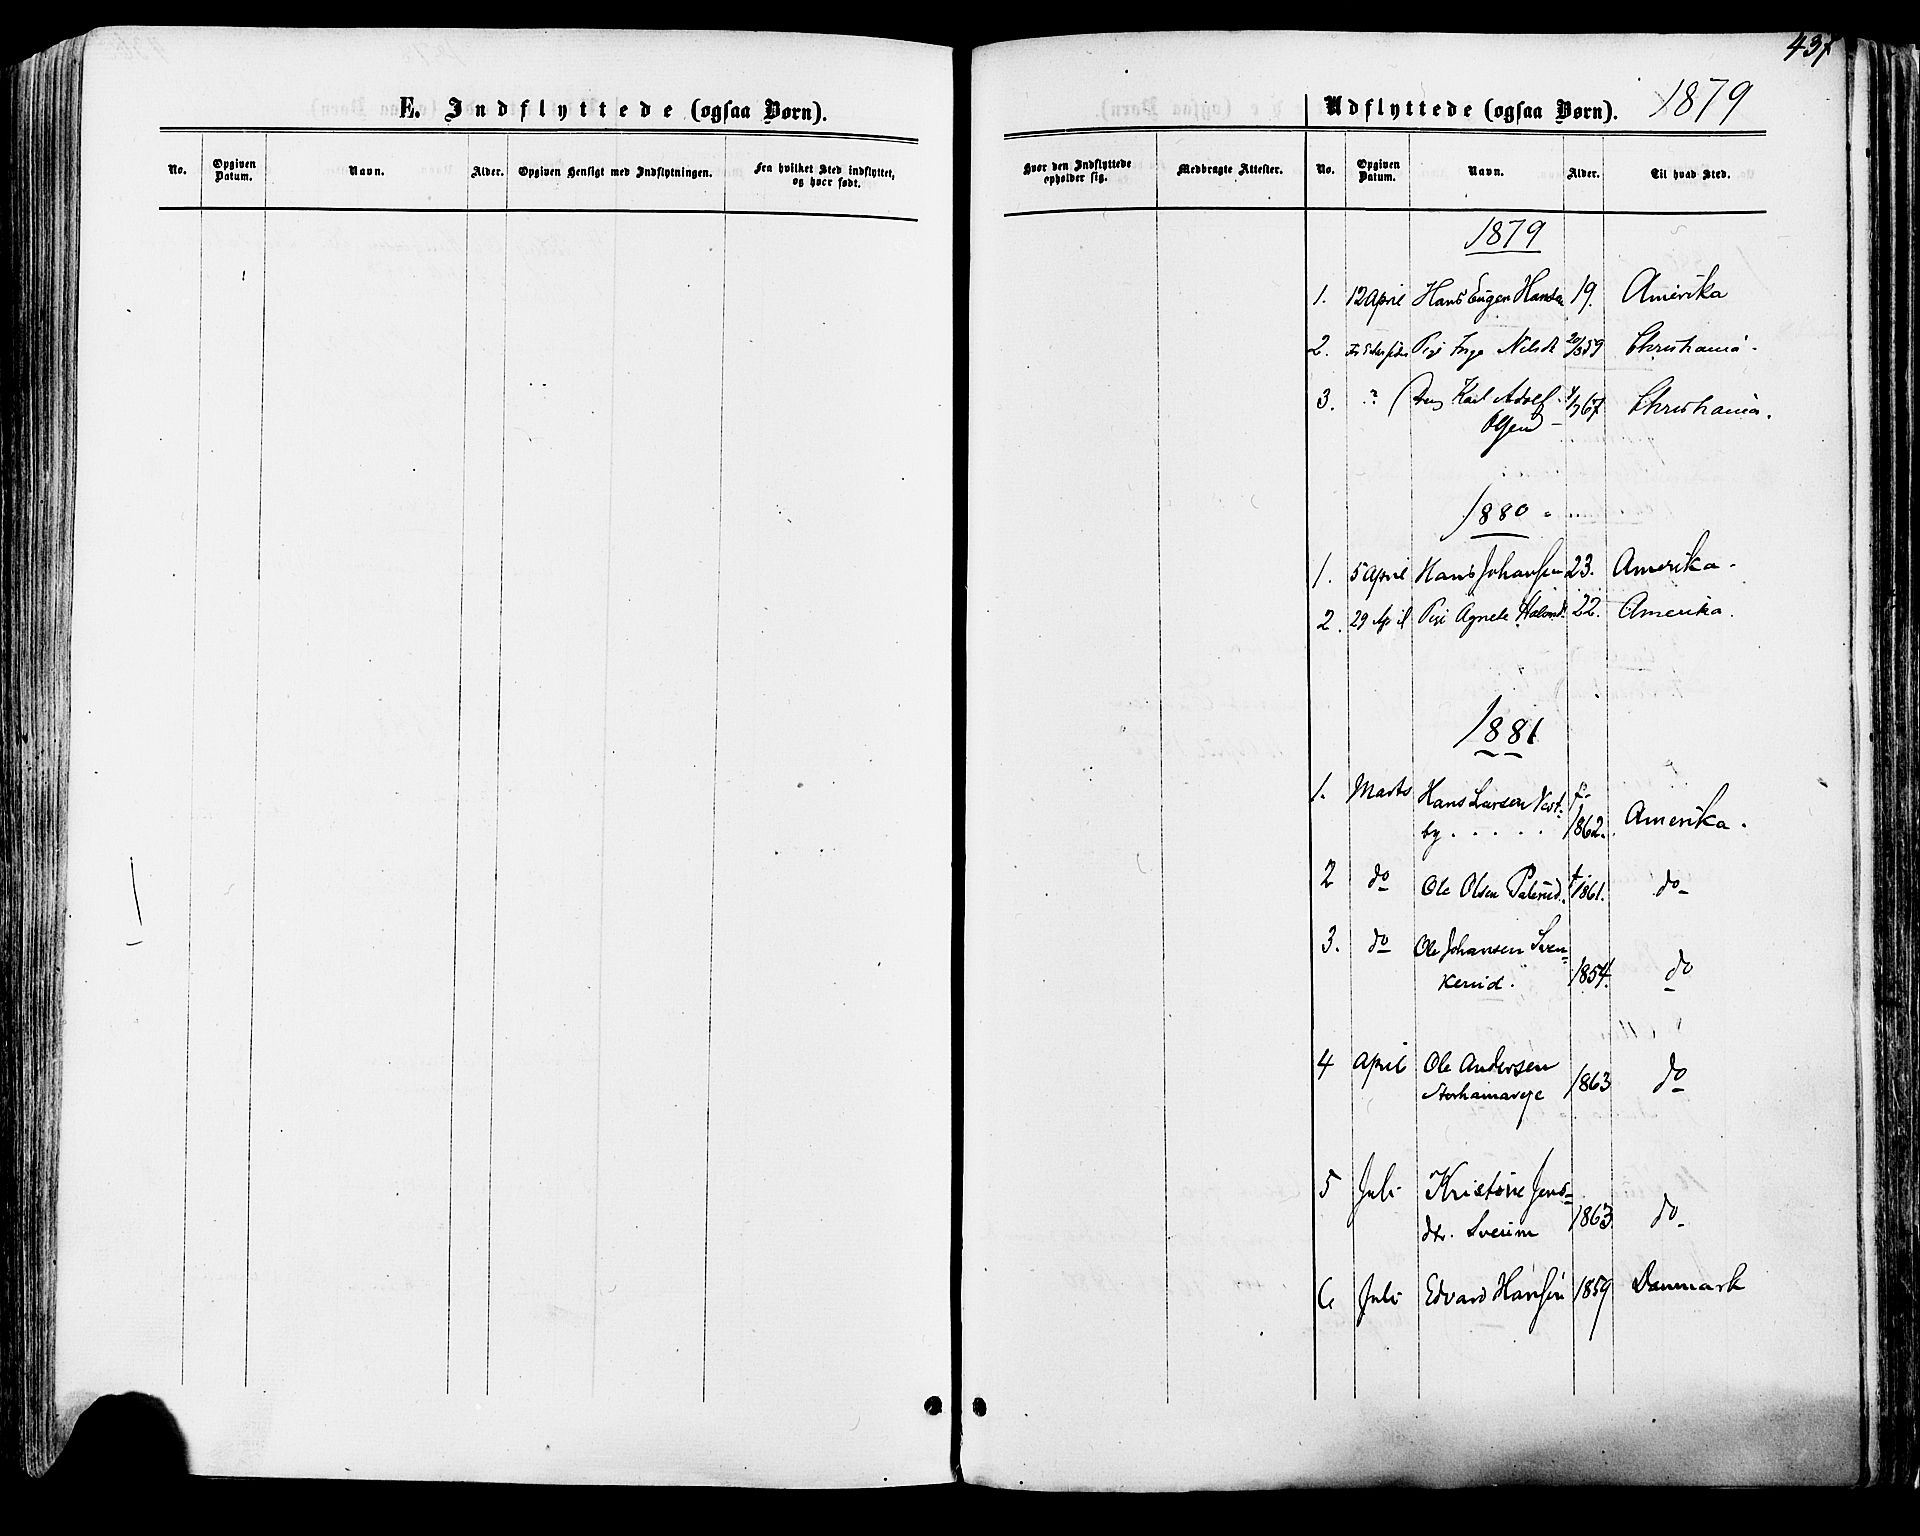 437
E. Indflyttede (ogsaa Børn).
No.
Opgiven Datum.
Navn.
Alder.
Opgiven Hensigt med Indflytningen.
Fra hvilket Sted indflyttet, og hvor født.
Hvor den Indflyttede opholder sig.
Medbragte Attester.
Udflyttede (ogsaa Børn). 1879
No.
Opgiven Datum.
Navn.
Alder.
Til hvad Sted.
1879
1. 12 April Hans Eugen Hansen 19. Amerika
2. Pige Inge Nilsdt 20/3 59 Christiania.
3. Dreng Karl Adolf 67. Christiania.
Olsen
1880
1. 5 April Hans Johansen 23. Amerika.
2. 29 April Pige Agnete 22. Amerika.
1881
1. Marts Hans Larsen Vest- f.
by . . . . . 1862. Amerika.
2 do Ole Olsen Palerud. f 1861. do
3. do Ole Johansen Sven-
kerud. 1854. do
4 April Ole Andersen
Storhamareje 1863 do
5 Juli Kristine Jens-
dtr. Sveum 1863 do
6 Juli Edvard Hansen 1859 Danmark